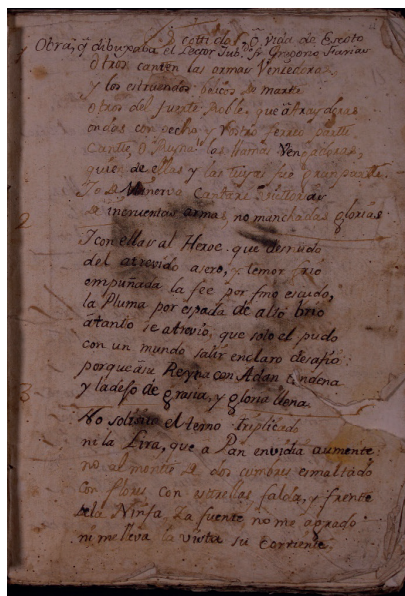 cotidos, q̃ vida de Escoto
y Obra, q̃ dibuxaba el Lector Jubº fr Gregorio Farias
Otros canten las armas Vencedoras
y los estruendos belicos de marte
Otros del fuerte Roble, que atraydoras
ondas con pecho y rostro ferreo parte
Cante, o Truyna las llamas Vengadoras,
quien de ellas y las tuyas fue gran parte.
Yo de Minerva Cantaré Victorias
de incruentas armas, no manchadas glorias
2
I con ellas al Heroe que desnudo
del atrevido asero, y temor frio
empuñada la fee por fino escudo,
la Pluma por espada de alto brio
atanto se atrevio, que solo el pudo
con un mundo salir enclaro desafio:
porque asu Reyna con Adan condena
y la deso de grasia, y gloria llena.
3
No solisito el terno Triplicado
ni la Lira, que a Pan envidia aumente:
no al monte de dos cumbres esmaltado
Con flores, con estrellas, falda, y frente
de la Ninfa La fuente no me agrado
ni me lleva la vista su corriente.